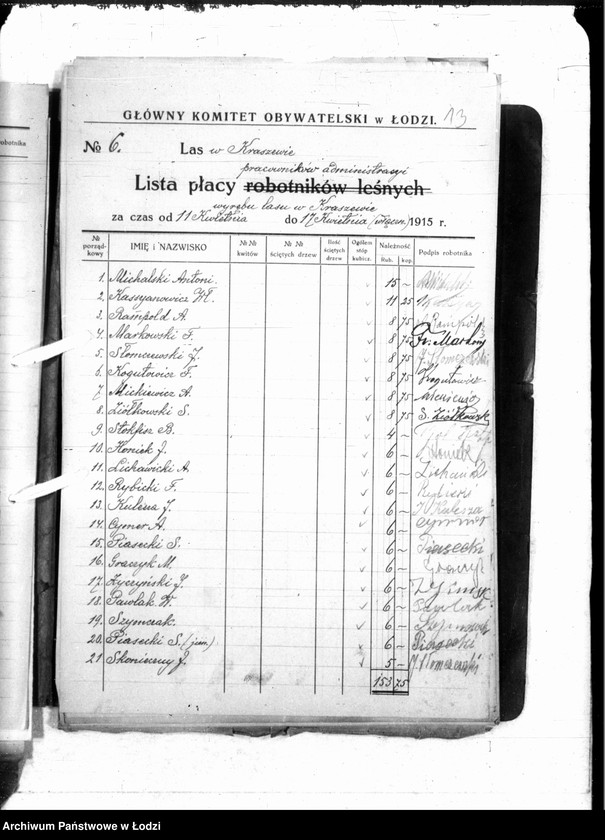 robotnika
GŁÓWNY KOMITET OBYWATELSKI w ŁODZI. 13
№ 6. Las w Kraszewie
pracowników administracyi
Lista płacy robotników leśnych
wyrębu lasu w Kraszewie
za czas od 11 Kwietnia do 17 Kwietnia (włącz.) 1915 r.
№ porządkowy IMIĘ i NAZWISKO №№ kwitów №№ ściętych drzew Ilość ściętych drzew Ogółem stóp kubicz. Należność Rub. kop. Podpis robotnika
1. Michalski Antoni. 15 –
2. Kassyanowicz Wł. 11 25
3. Rampold A. 8 75 A Rampold
4. Markowski F. 8 75 Fr. Markows
5. Słomczewski J. 8 75
6. Kogutowicz F. 8 75 Kogutowicz
7. Mickiewicz A. 8 75 Mickiewicz
8. Ziółkowski S. 8 75 S. Ziółkowski
9. Stokfisz B. 4 –
10. Honick J. 6 –
11. Lichawicki A. 6 –
12. Rybicki F. 6 – Rybicki
13. Kulesza J. 6 – Kulesza
14. Cymer A. 6 – Cymmer
15. Piasecki S. 6 – Piasecki
16. Graczyk M. 6 – Graczyk
17. Życzyński J. 6 –
18. Pawlak W. 6 –
19. Szymczak. 6 –
20. Piasecki S. (jun.) 6 – Piasecki
21 Skonieczny J. 5 –
153 75
Archiwum Państwowe w Łodzi